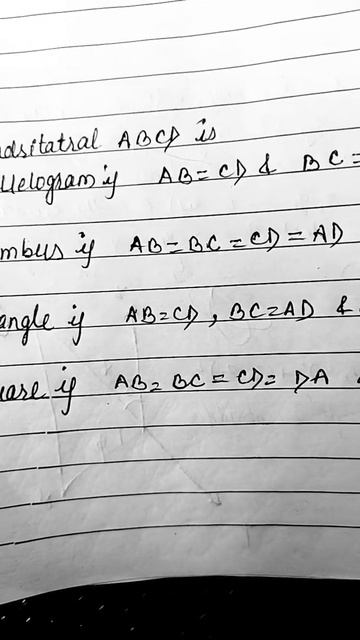 adsitatral ABCD is
llelogram if AB = CD & BC =
mbus if AB = BC = CD = AD
angle if AB = CD, BC = AD &
uare if AB = BC = CD = DA